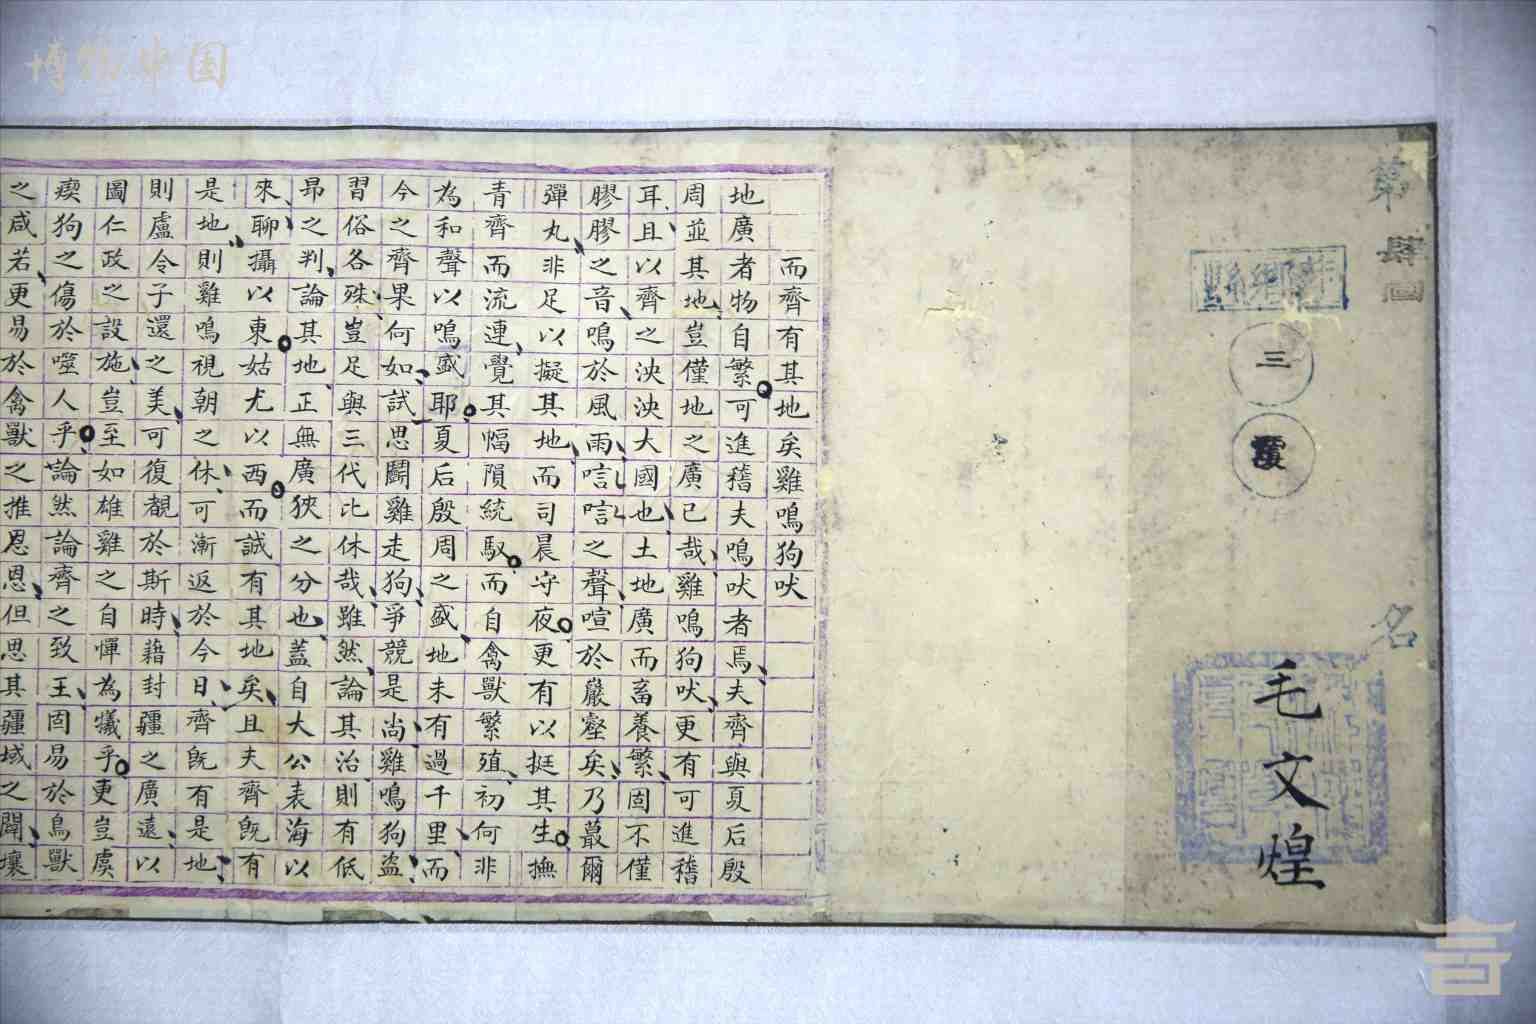 第肆
名
三
覆
毛文煌
而齊有其地矣雞鳴狗吠
地廣者物自繁可進稽夫鳴吠者焉夫齊與夏后殷
周並其地豈僅地之廣已哉雞鳴狗吠更有可進稽
耳且以齊之泱泱大國也土地廣而畜養繁固不僅
膠膠之音鳴於風雨唁唁之聲喧於巖壑矣乃蕞爾
彈丸非足以擬其地而司晨守夜更有以挺其生撫
青齊而流連覺其幅隕統馭而自禽獸繁殖初何非
為和聲以鳴盛耶夏后殷周之盛地未有過千里而
今之齊果何如試思鬭雞走狗爭競是尚雞鳴狗盗
習俗各殊豈足與三代比休哉雖然論其治則有低
昻之判論其地正無廣狹之分也蓋自大公表海以
來聊攝以東姑尤以西而誠有其地矣且夫齊旣有
是地則雞鳴視朝之休可漸返於今日齊旣有是地
則盧令子還之美可復覩於斯時藉封疆之廣遠以
圖仁政之設施豈至如雄雞之自憚為犧乎更豈虞
瘈狗之傷於噬人乎論然論齊之致王固易於鳥獸
之咸若更易於禽獸之推恩恩但思其疆域之闢壤
博物中国